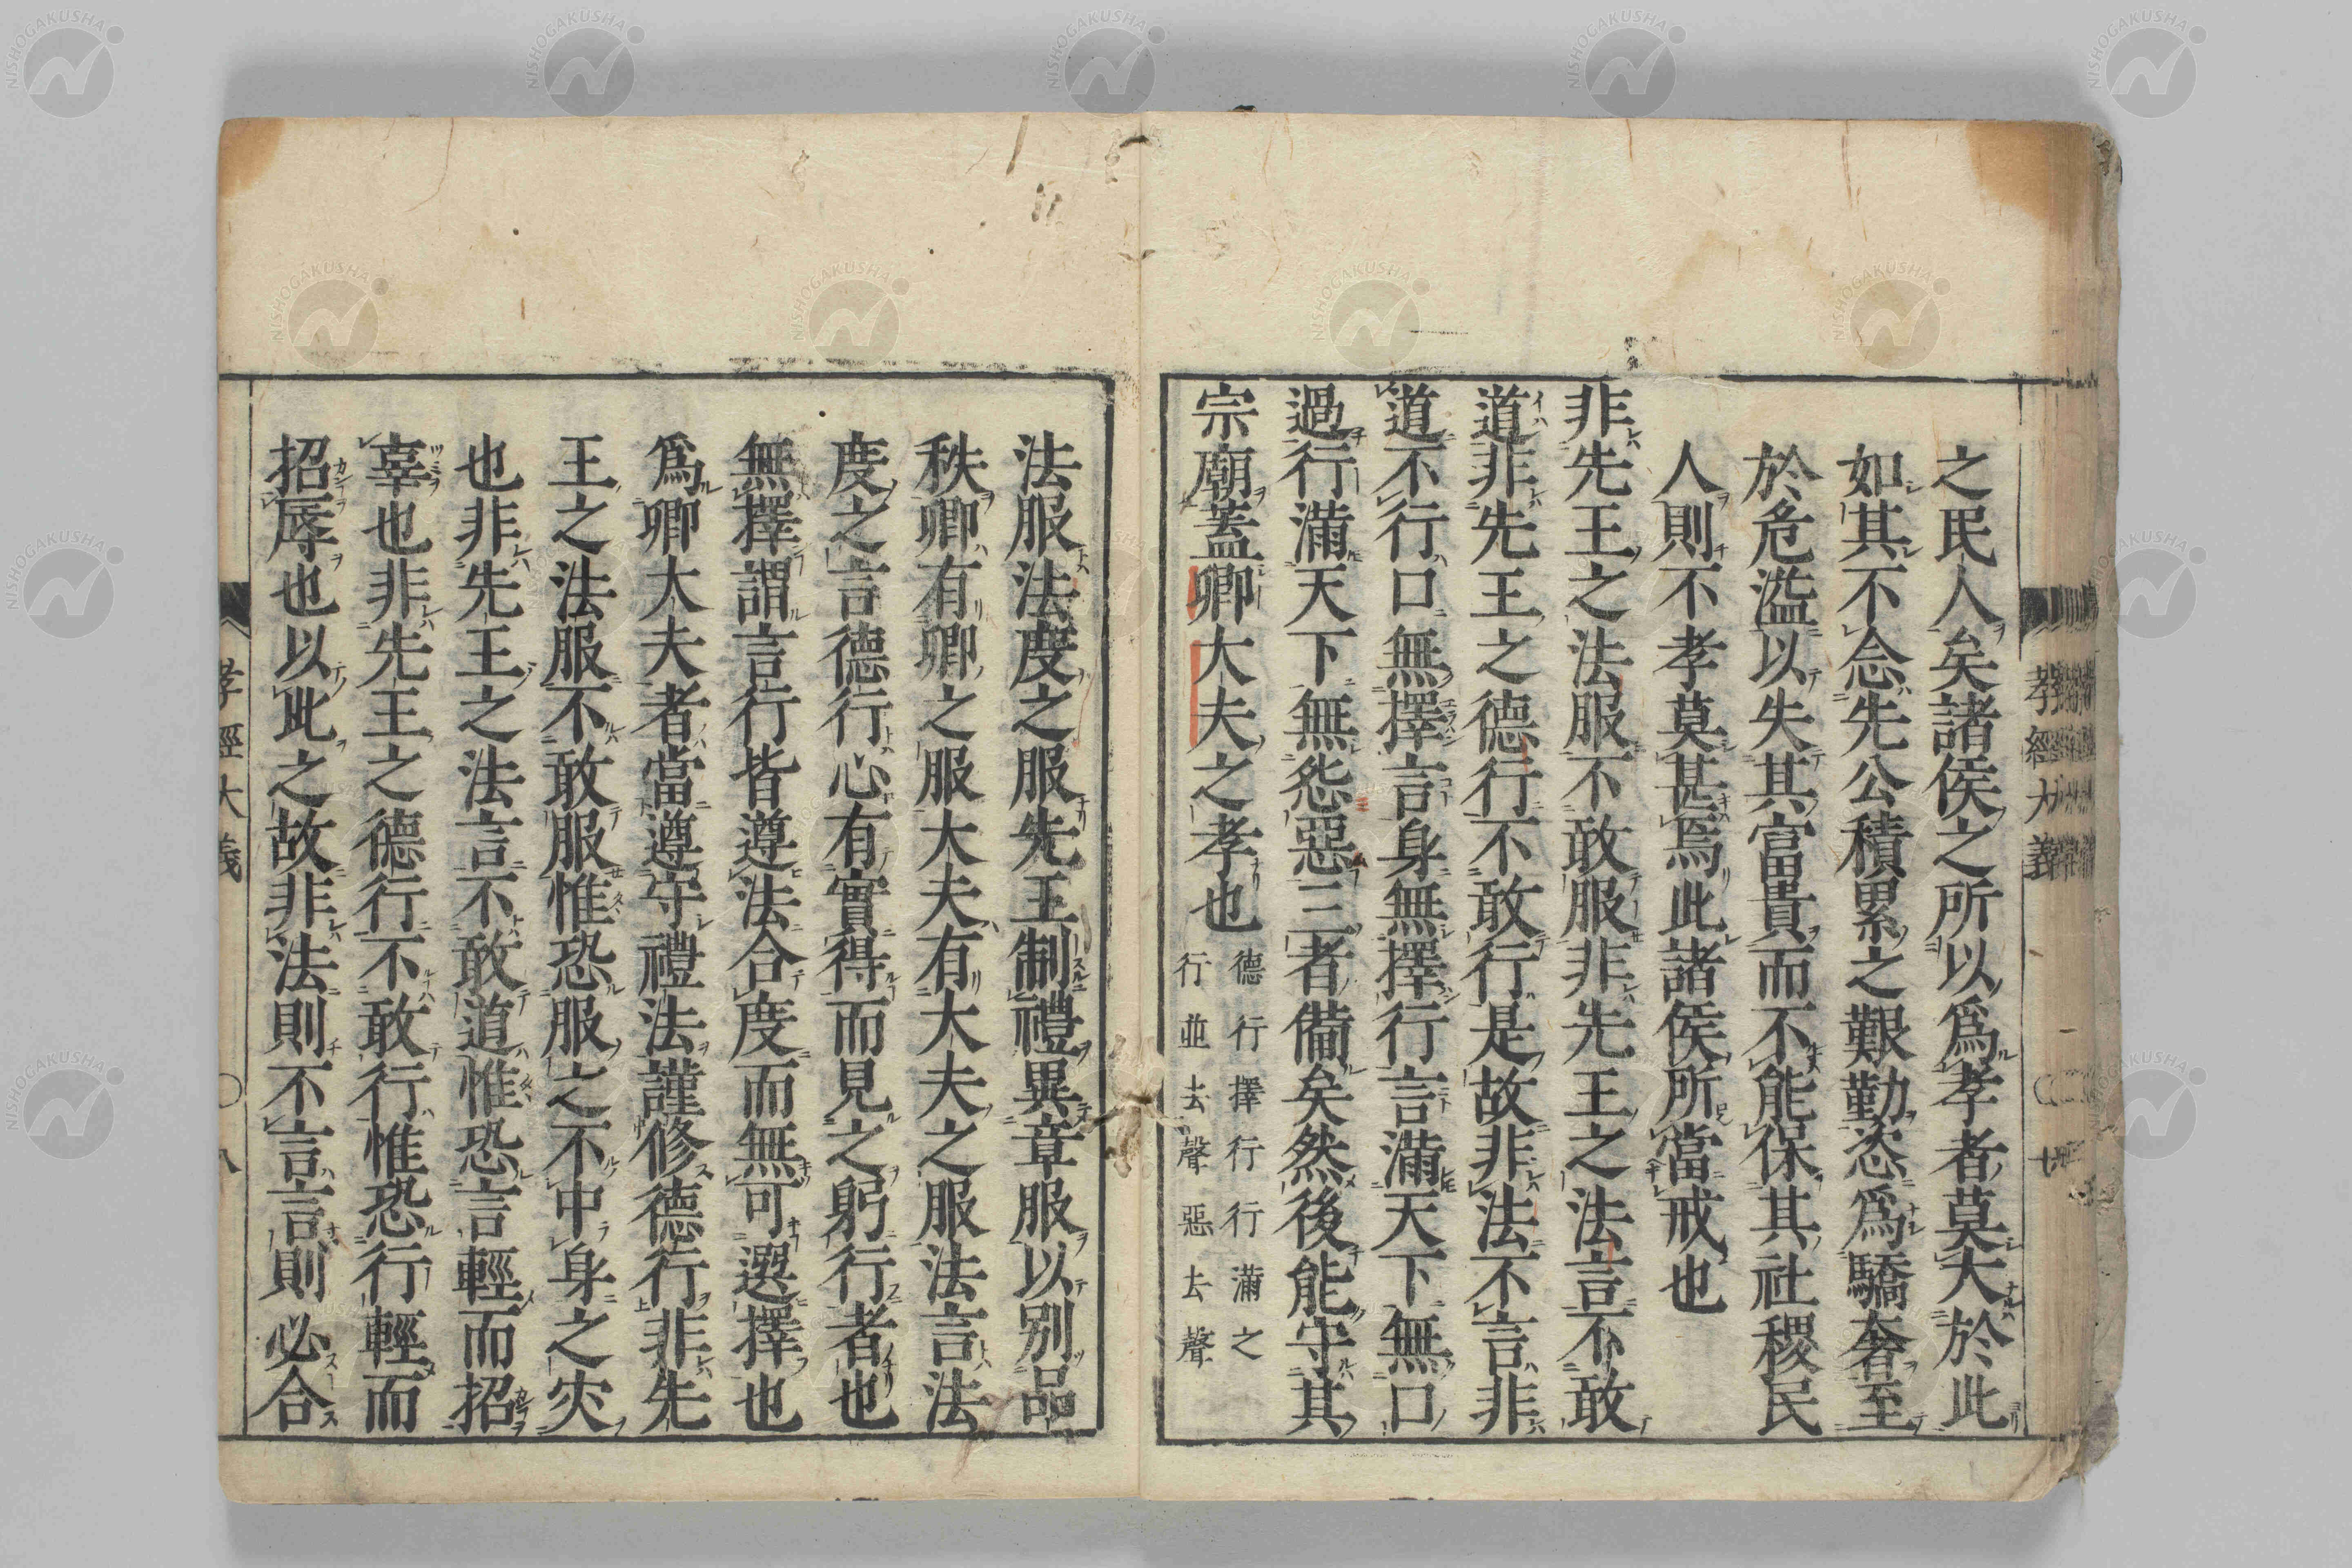 之民人矣諸侯之所以爲孝者莫大於此
如其不念先公積累之艱勤恣爲驕奢至
於危溢以失其富貴而不能保其社稷民
人則不孝莫甚焉此諸侯所當戒也
非先王之法服不敢服非先王之法言不敢
道非先王之德行不敢行是故非法不言非
道不行口無擇言身無擇行言滿天下無口
過行滿天下無怨惡三者備矣然後能守其
宗廟蓋卿大夫之孝也
德行擇行行滿之
行並去聲惡去聲
孝經大義
七
法服法度之服先王制禮異章服以別品
秩卿有卿之服大夫有大夫之服法言法
度之言德行心有實得而見之躬行者也
無擇謂言行皆遵法合度而無可選擇也
爲卿大夫者當遵守禮法謹修德行非先
王之法服不敢服惟恐服之不中身之灾
也非先王之法言不敢道惟恐言輕而招
辜也非先王之德行不敢行惟恐行輕而
招辱也以此之故非法則不言言則必合
孝經大義
八
NISHOGAKUSHA